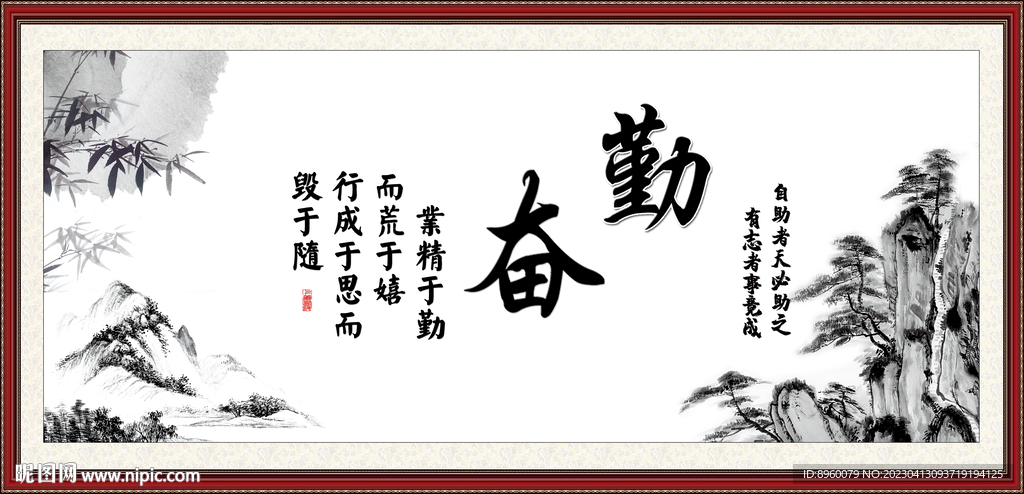 自助者天必助之
有志者事竟成
勤
奋
業精于勤
而荒于嬉
行成于思而
毁于隨
昵图网 www.nipic.com
ID:8960079 NO:20230413093719194125